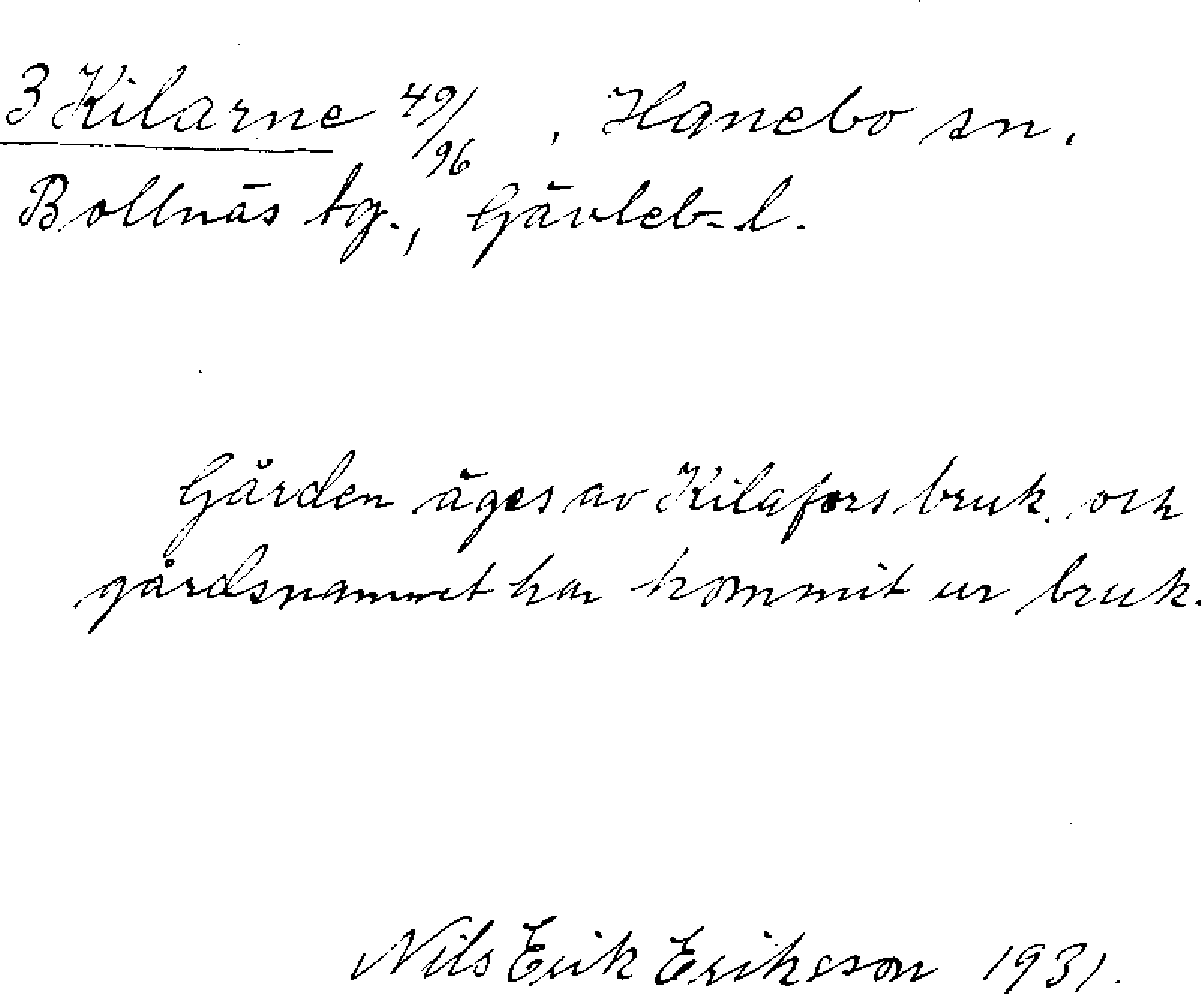 3 Kilarne 49/96, Hanebo sn.
Bollnäs tg., Gävleb-l.
Gården äges av Kilafors bruk. och
gårdsnamnet har kommit ur bruk.
Nils Erik Erikson 1931.